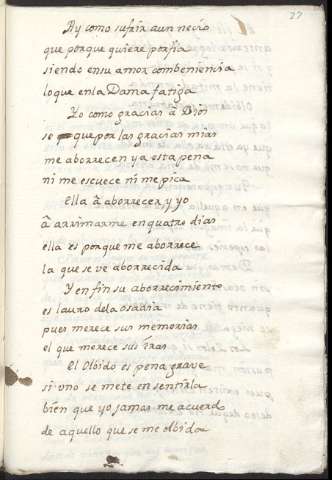 27
Ay como sufrir aun necio
que porque quiere porfia
siendo ensu amor combeniencia
loque enla Dama fatiga
Yo como gracias â Dios
se que por las gracias mias
me aborrecen ya esta pena
ni me escuece ni me pica
Ella â aborrecer y yo
â arrimarme en quatro dias
ella es porque me aborrece
la que se ve aborrecida
Y en fin su aborrecimiento
es lauro dela osadia
pues merece sus memorias
el que merece sus iras
El Olbido es pena grave
si uno se mete en sentirla
bien que yo jamas me acuerdo
de aquello que se me olbida